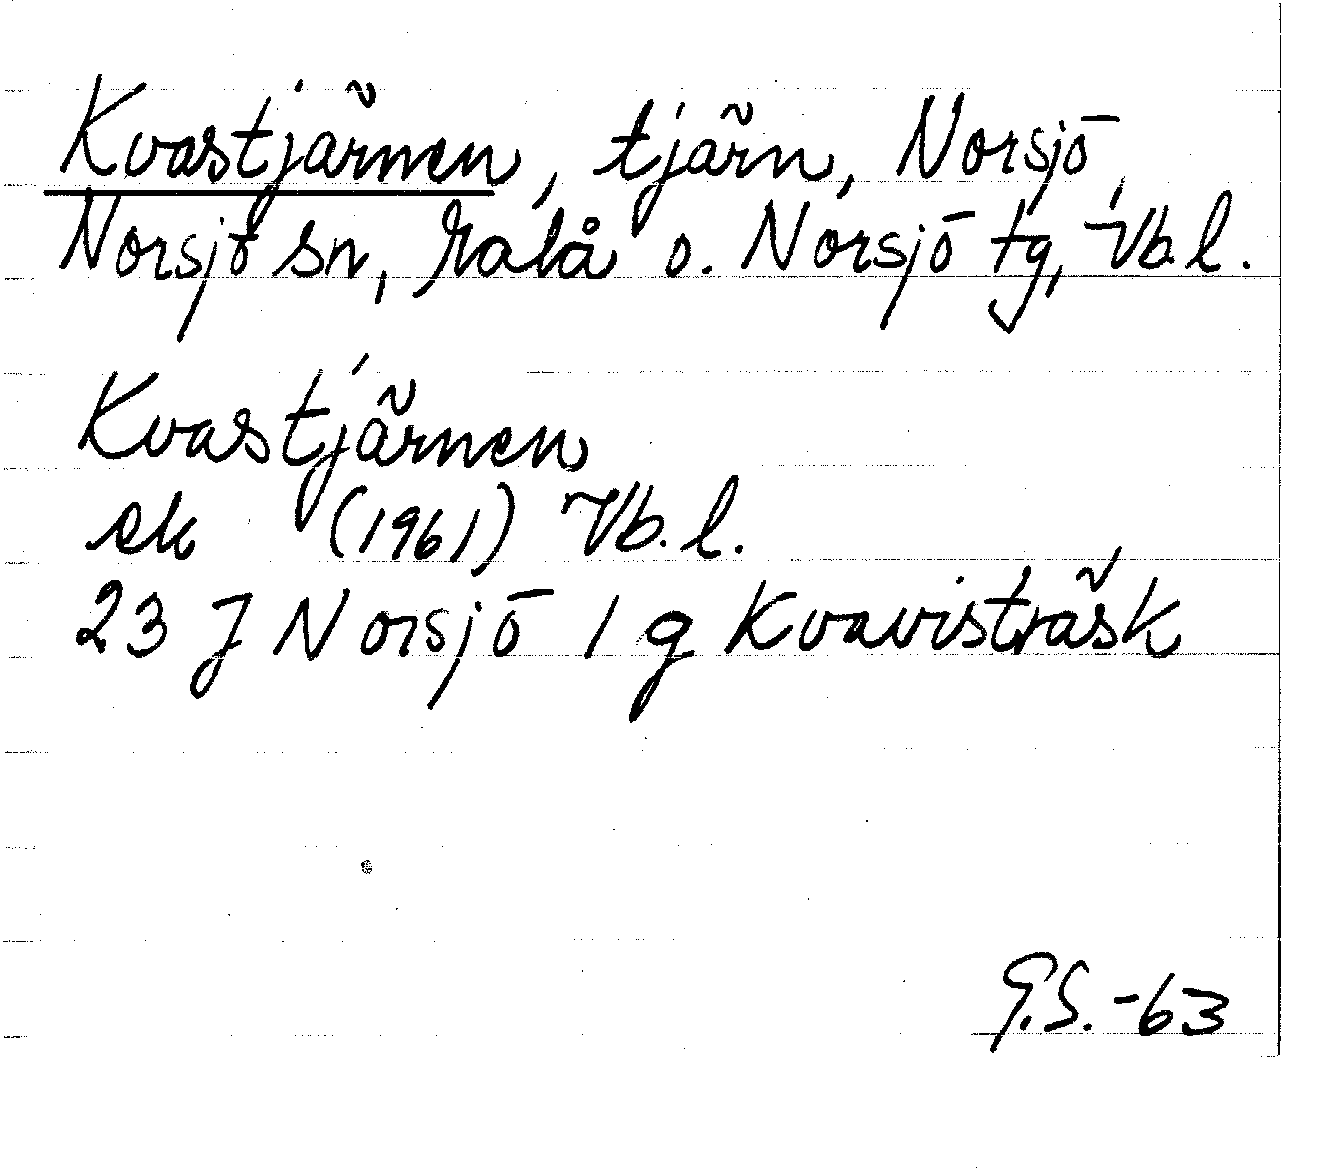 Kvastjärnen, tjärn, Norsjö,
Norsjö sn, Malå o. Norsjö tg, Vb.l.
Kvastjärnen
ek (1961) Vb.l.
23 J Norsjö 1 g Kvavisträsk
G.S.-63